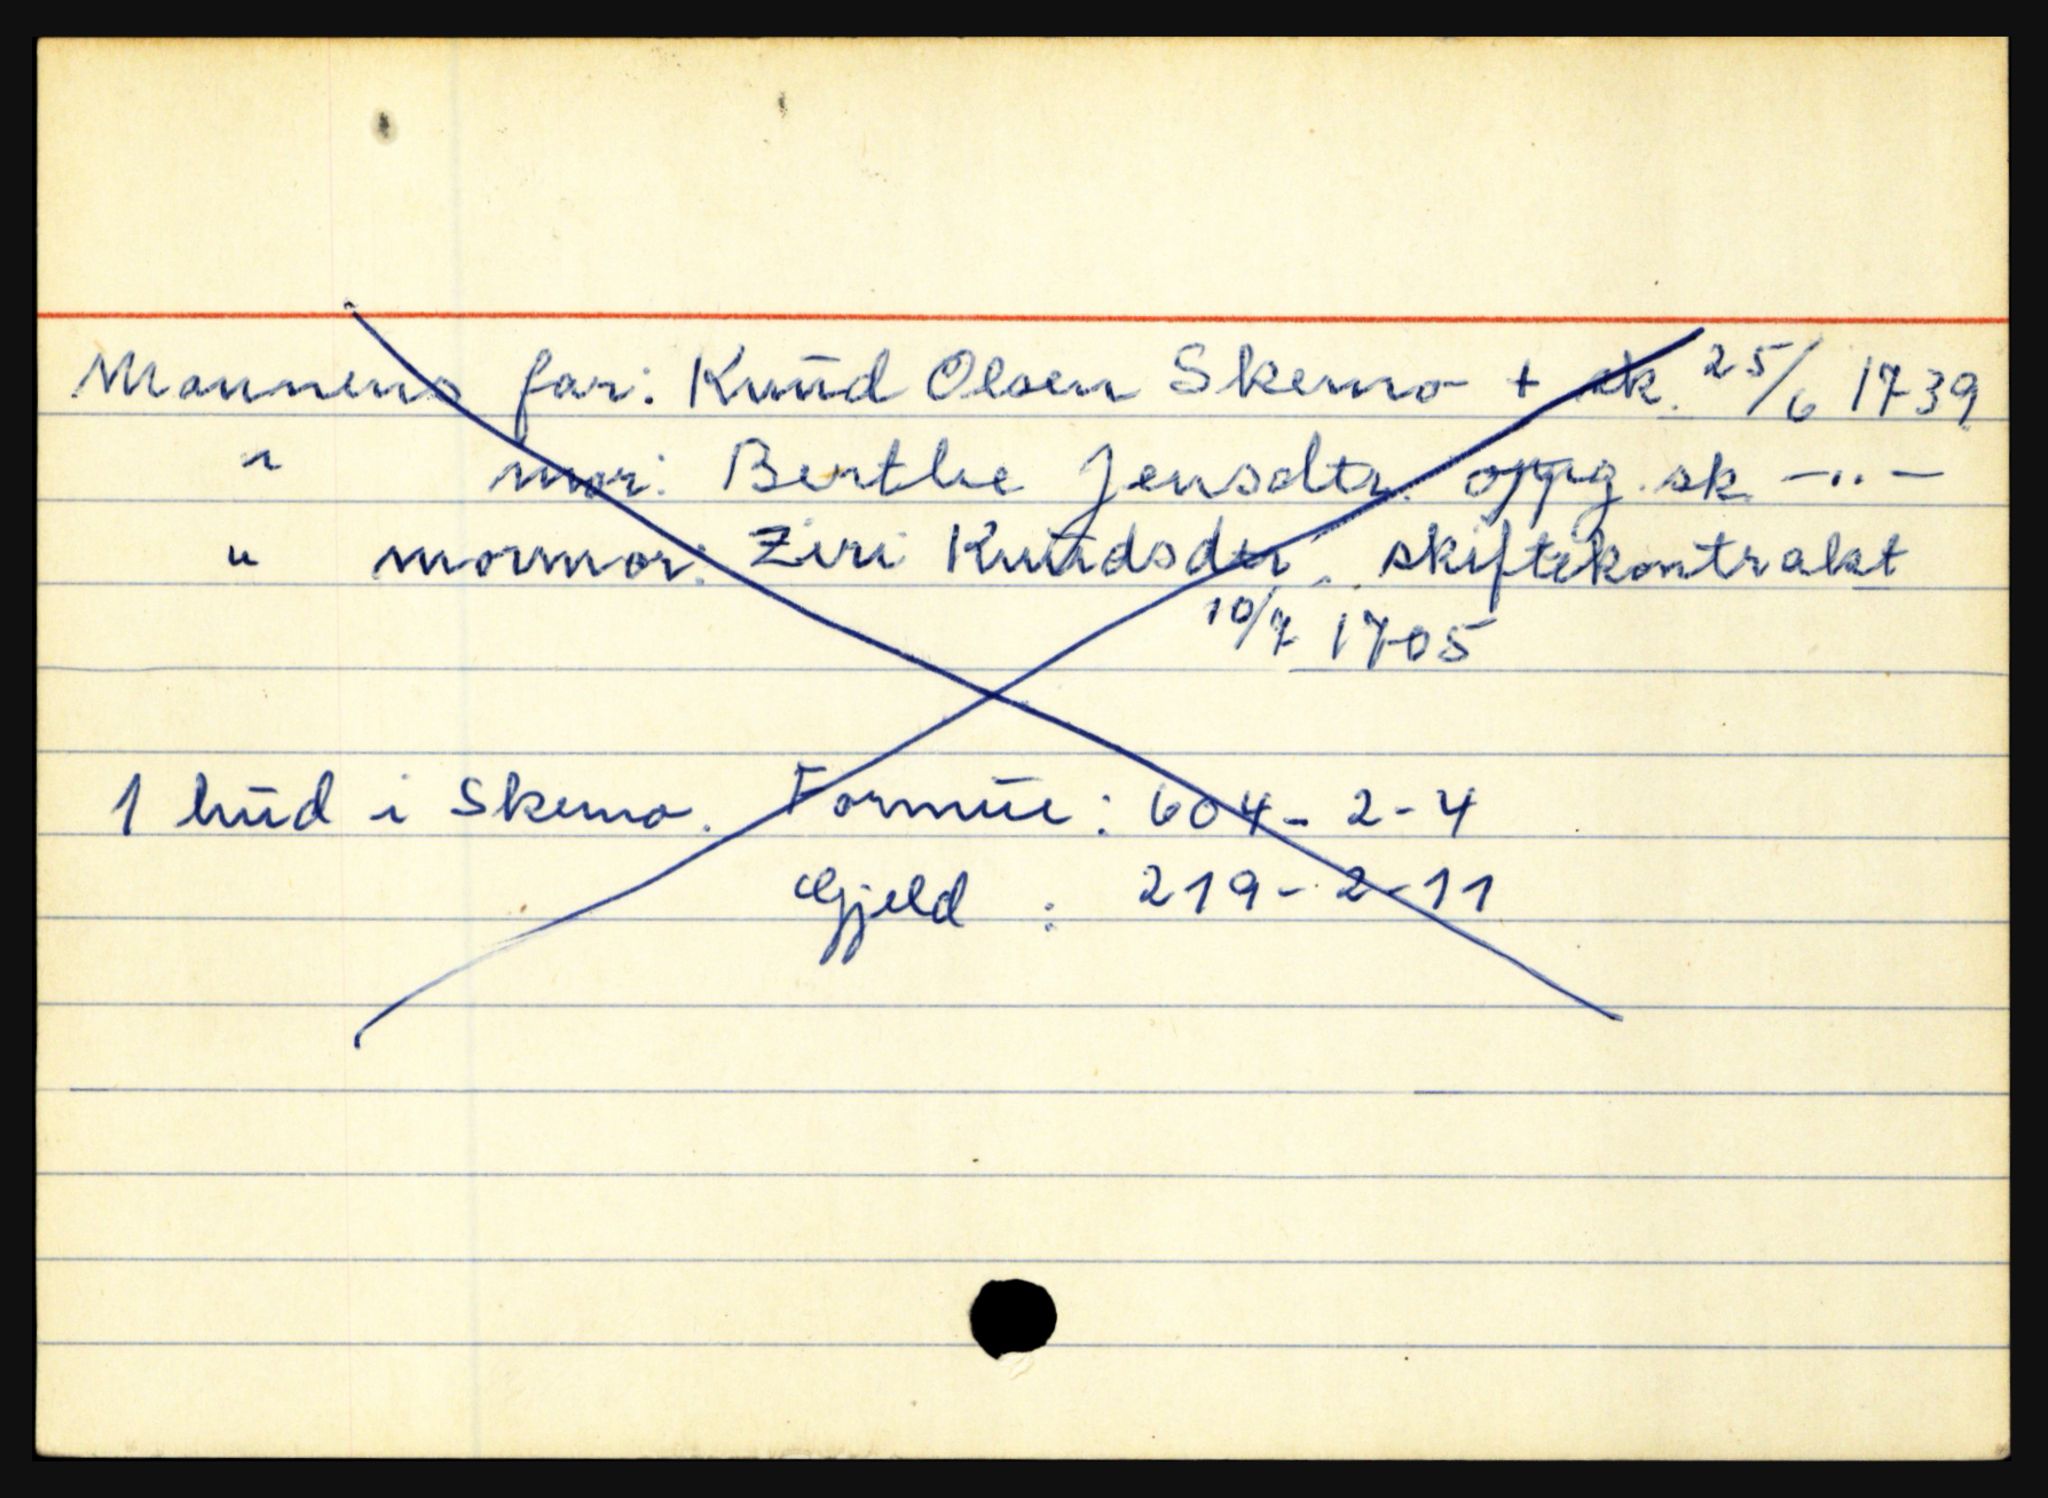 Mannens far: Knud Olsen Skemo + sk. 25/6 1739
" mor: Berthe Jensdtr. oppg. sk. -..-
" mormor: Ziri Knudsdtr. skiftekontrakt
10/7 1705
1 hud i Skemo. Formue: 604-2-4
Gjeld : 219-2-11